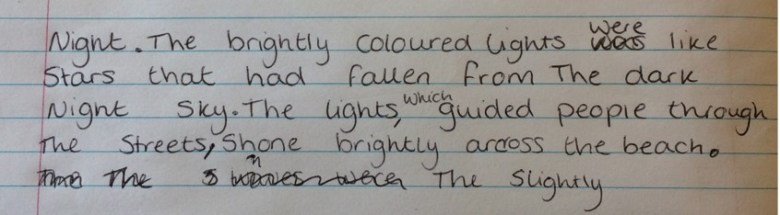 Night. The brightly coloured lights were like
Stars that had fallen from The dark
Night Sky. The lights, which guided people through
The Streets, Shone brightly arcoss the beach.
The The Slightly